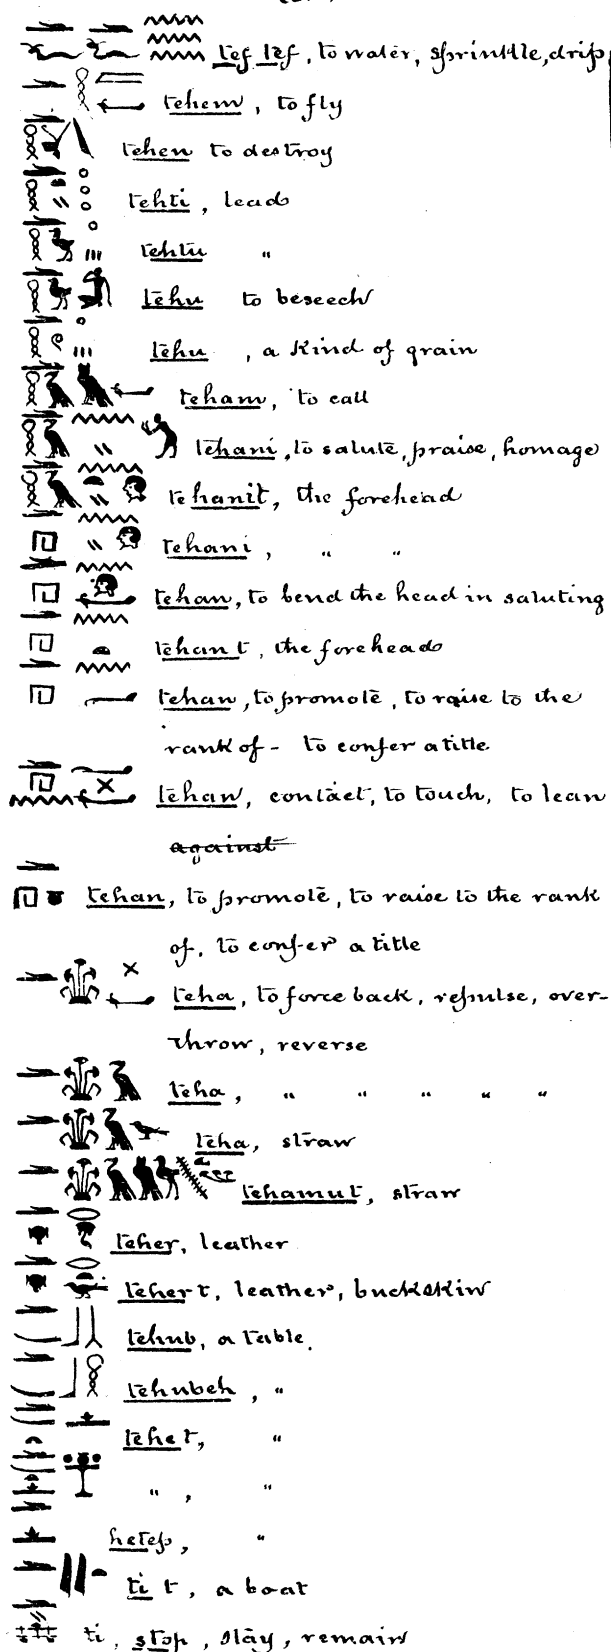 tef tef, to water, sprinkle, drip
tehem, to fly
tehen to destroy
tehti, lead
tehtu "
tehu to beseech
tehu, a kind of grain
teham, to call
tehani, to salute, praise, homage
tehanit, the forehead
tehani, " "
tehan, to bend the head in saluting
tehan t, the forehead
tehan, to promote, to raise to the
rank of - to confer a title
tehan, contact, to touch, to lean
against
tehan, to promote, to raise to the rank
of, to confer a title
teha, to force back, repulse, over-
throw, reverse
teha, " " " " "
teha, straw
tehamut, straw
teher, leather
teher t, leather, buckskin
tehub, a table.
tehubeh, "
tehe t, "
" , "
hetep, "
ti t, a boat
ti, stop, stay, remain